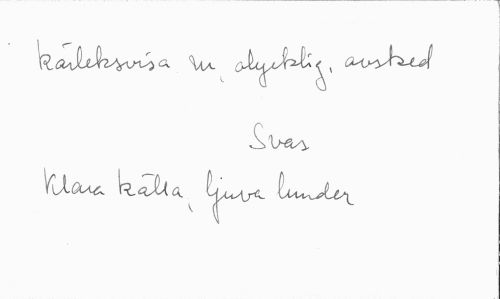 kärleksvisa m, olycklig, avsked
Svas
Klara källa, ljuva lunder